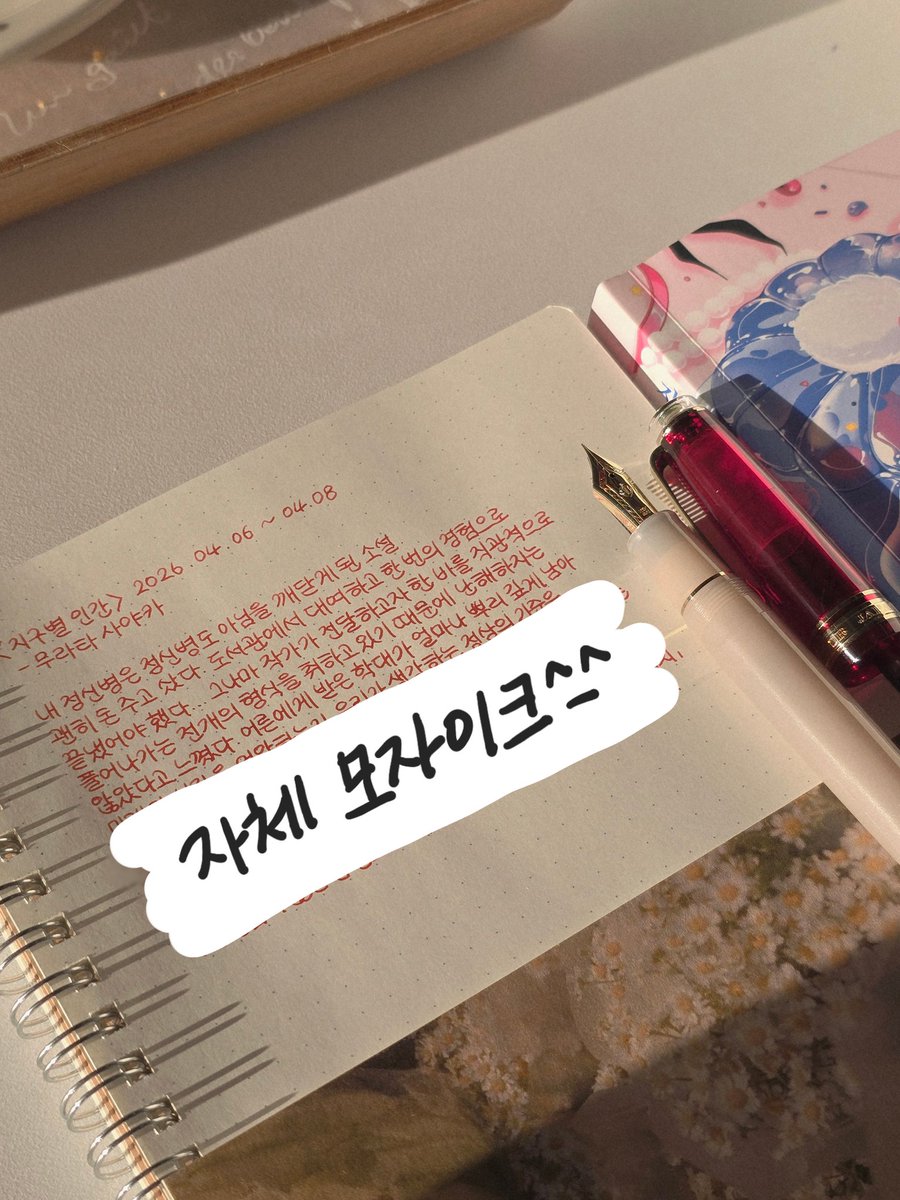 <지구별 인간> 2026.04.06 ~ 04.08
- 무라타 사야카
내 정신병은 정신병도 아님을 깨닫게 된 소설
괜히 돈 주고 샀다. 도서관에서 대여하고 한 번의 경험으로
끝냈어야 했다... 그나마 작가가 전달하고자 한 바를 직관적으로
풀어나가는 전개의 형식을 취하고 있기 때문에 난해하지는
않았다고 느꼈다. 어른에게 받은 학대가 얼마나 뿌리 깊게 남아
생각하는 정상의 기준은
자체 모자이크^^